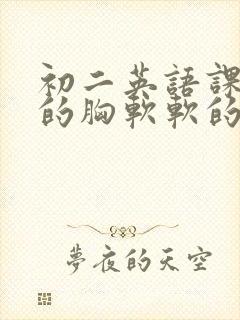 初二英語課
的胸軟軟的
夢夜的天空